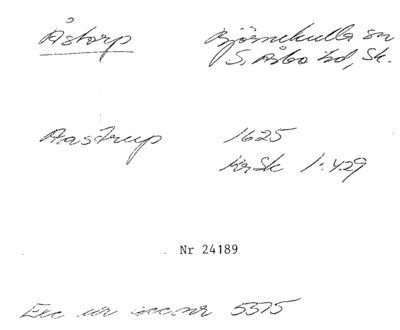 Åstorp Björnekulla sn
S. Åsbo hd, Sk.
Aastrup 1625
KrSk 1:429
Nr 24189
Exc ur acc.nr 5375